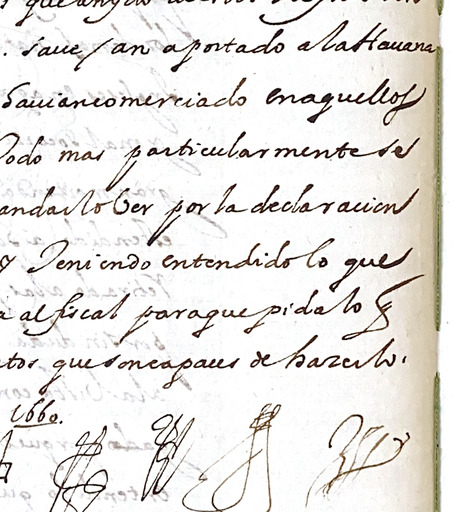 saue, an aportado a la Hauana
hauian comerciado en aquellos
todo mas particularmente se
andarlo Ver por la declaracion
y Teniendo entendido lo que
a al fiscal para que pida lo
que son capaces de hazerlo.
1660.